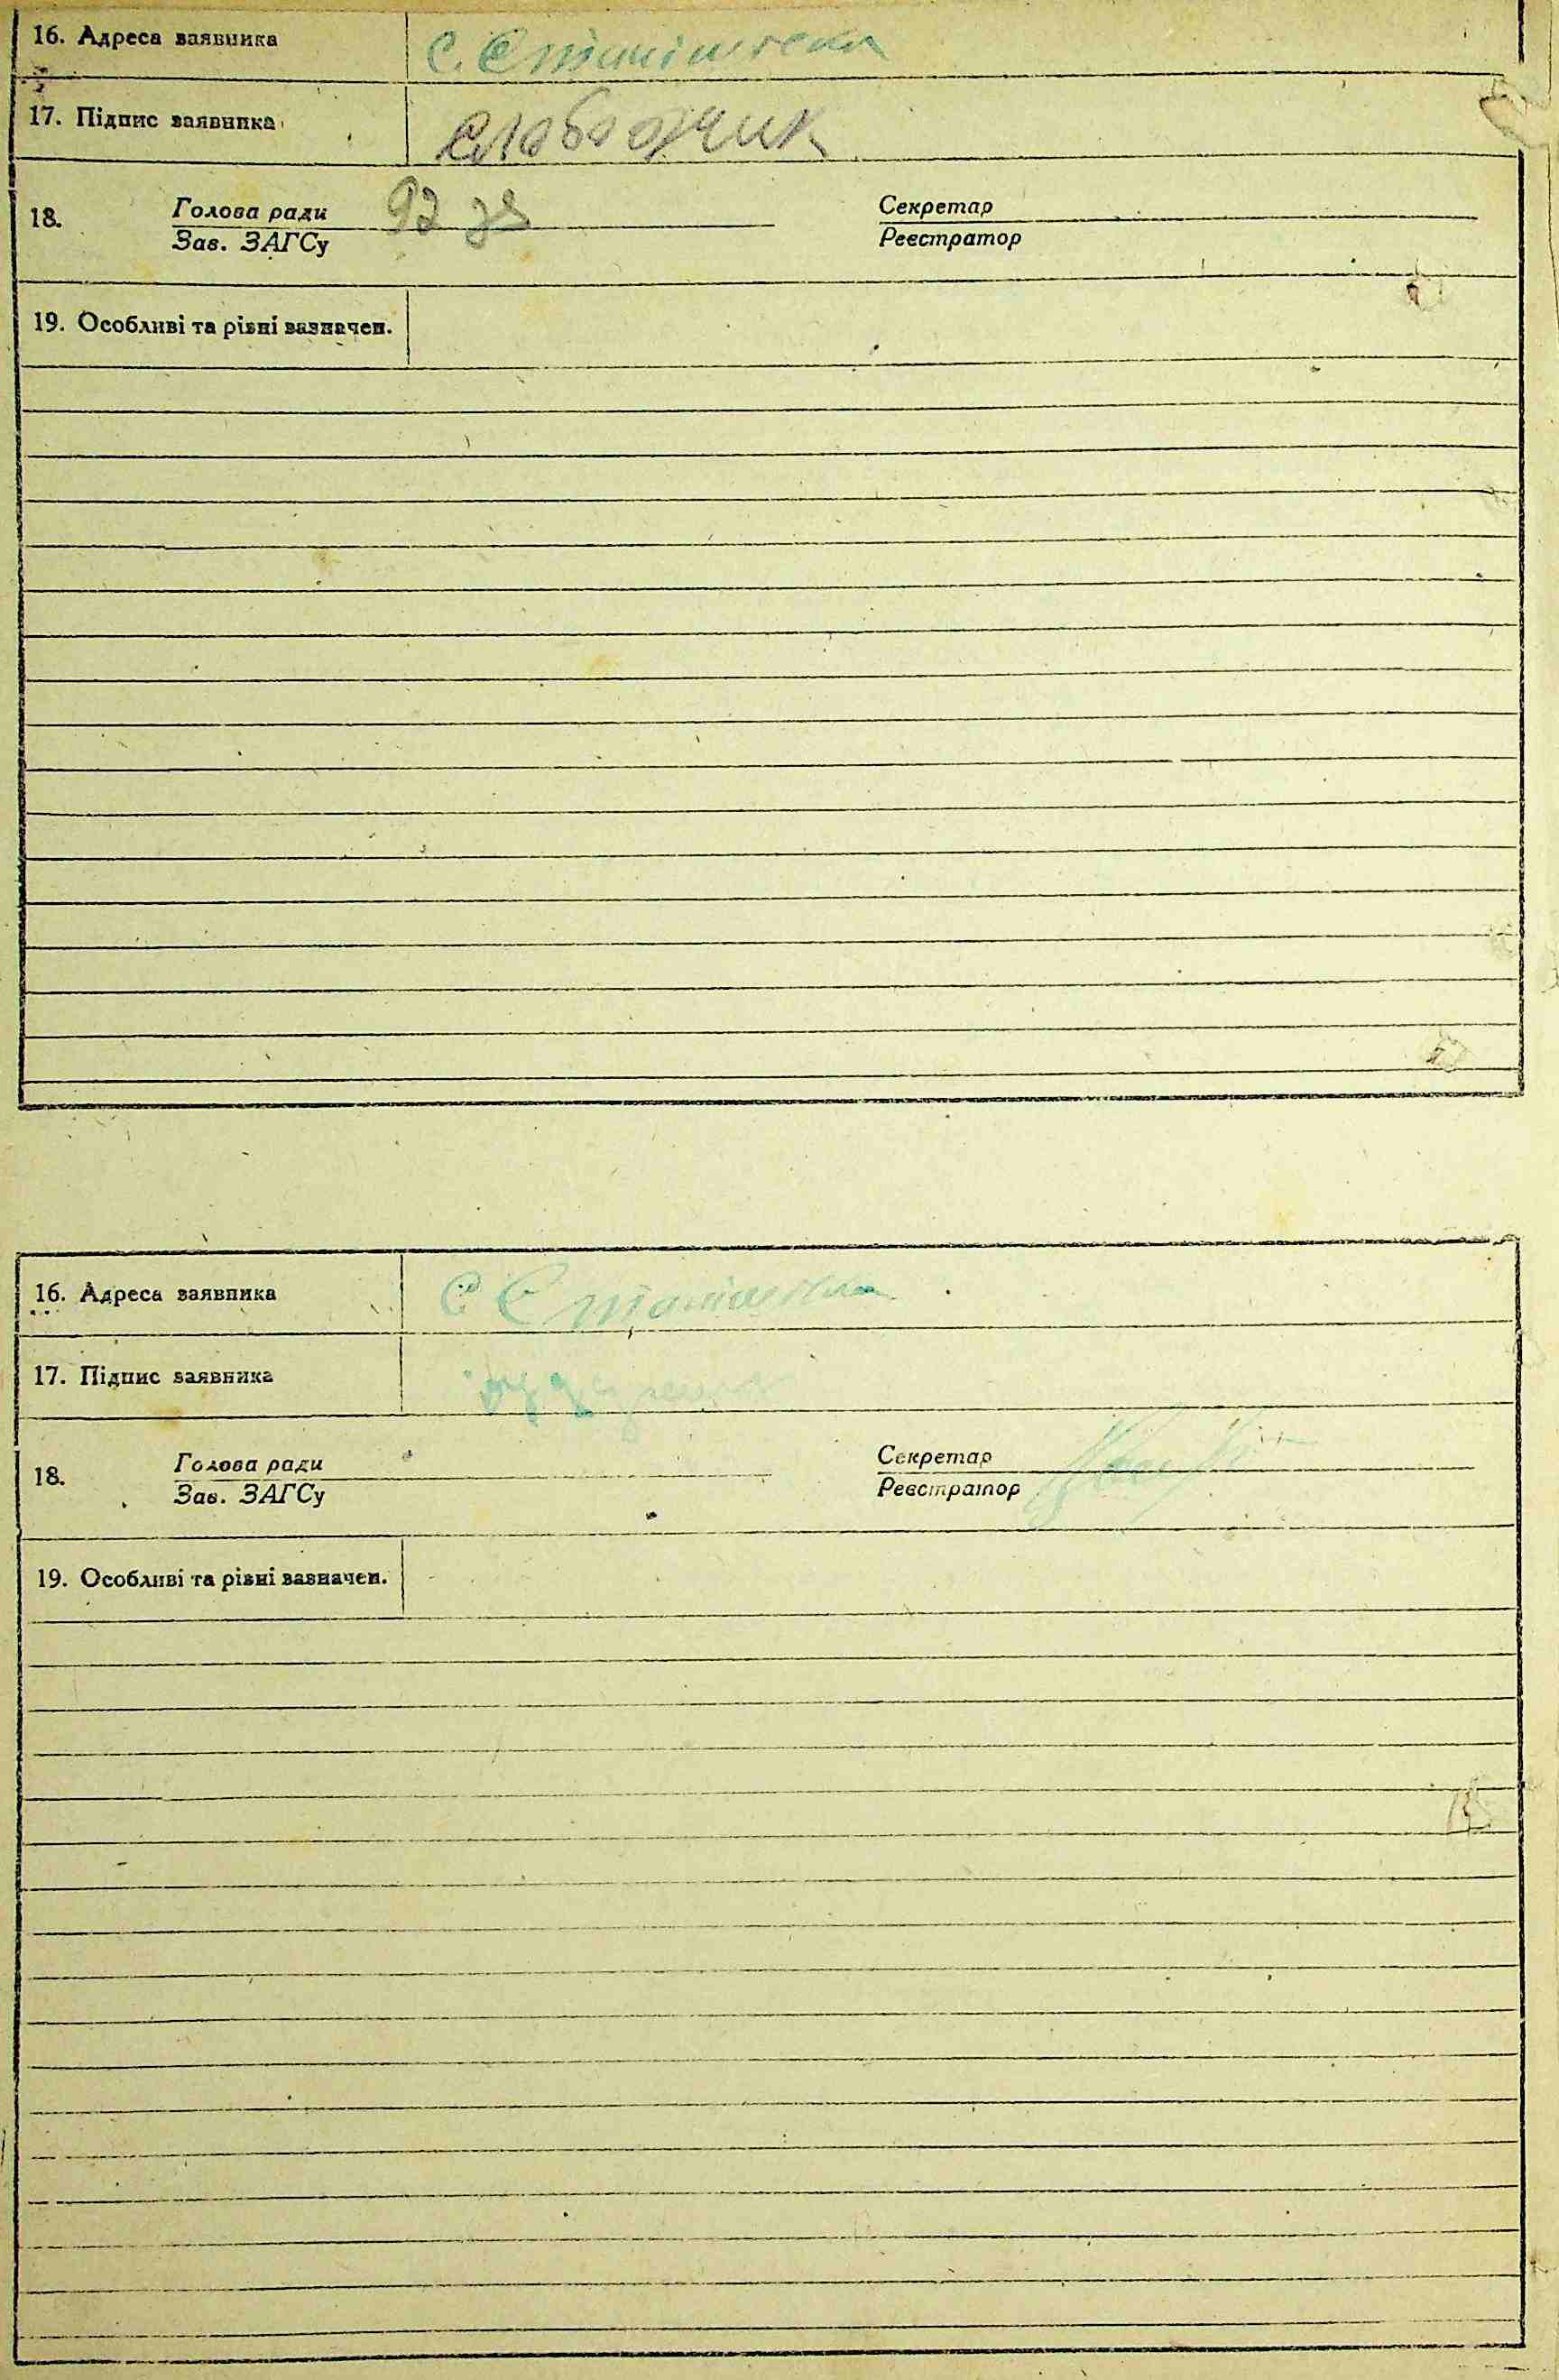 16. Адреса заявника с. Станішевка
17. Підпис заявника слободчик
18. Голова ради Секретар
Зав. ЗАГСу Реєстратор
19. Особливі та різні зазначен.
16. Адреса заявника С Станишевка
17. Підпис заявника
18. Голова ради Секретар
Зав. ЗАГСу Реєстратор
19. Особливі та різні зазначен.